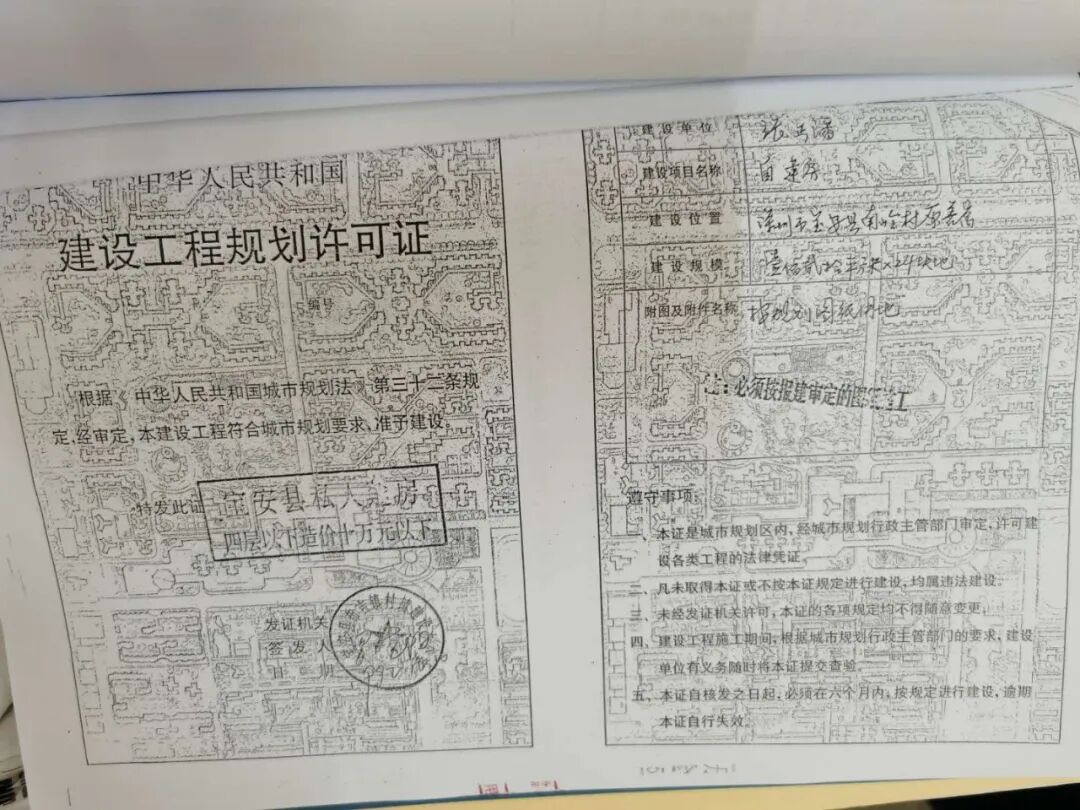 中华人民共和国
建设工程规划许可证
编号
根据《中华人民共和国城市规划法》第三十二条规
定,经审定,本建设工程符合城市规划要求,准予建设。
特发此证
宝安县私人建房
四层以下造价十万元以下
发证机关
签发人
日期
建设单位
建设项目名称
建设位置
建设规模
附图及附件名称 按规划图纸用地
注:必须按报建审定的图纸施工
遵守事项:
一、本证是城市规划区内,经城市规划行政主管部门审定,许可建
设各类工程的法律凭证。
二、凡未取得本证或不按本证规定进行建设,均属违法建设。
三、未经发证机关许可,本证的各项规定均不得随意变更。
四、建设工程施工期间,根据城市规划行政主管部门的要求,建设
单位有义务随时将本证提交查验。
五、本证自核发之日起,必须在六个月内,按规定进行建设,逾期
本证自行失效。